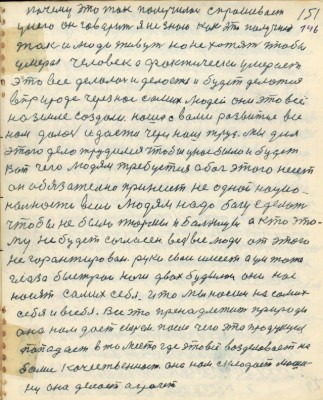 151
почему это так получилось спрашивает 146
у него он говорит я не знаю как это получил
так и люди живут но не хотят чтобы
умерал человек а фактически умерает
Это все делалось и делается и будет делатся
в природе через нас самих людей они это всё
на земле создали нашое с вами развитие все
нам дают и дается через наш труд. Мы для
этого дело трудимся чтобы у нас было и будет
Вот чего людям требуется а бог этого несет
он обязательно принесет не одной нацио-
нальности всем людям надо богу сделать
чтобы не было тюрьмы и больницы а кто это-
му не будет согласен все люди от этого
не гарантирован руки свои имеет а ум тоже
глаза быстрые ноги двох будьто они нас
носят самих себя. и то мы носим на самих
себя и всебя. Все это принадлежит природе
она нам дает сырьё после чего эта продукция
попадает в то место где это всё возделовается на
более качественность она нам создает маши-
ну она делает самолет